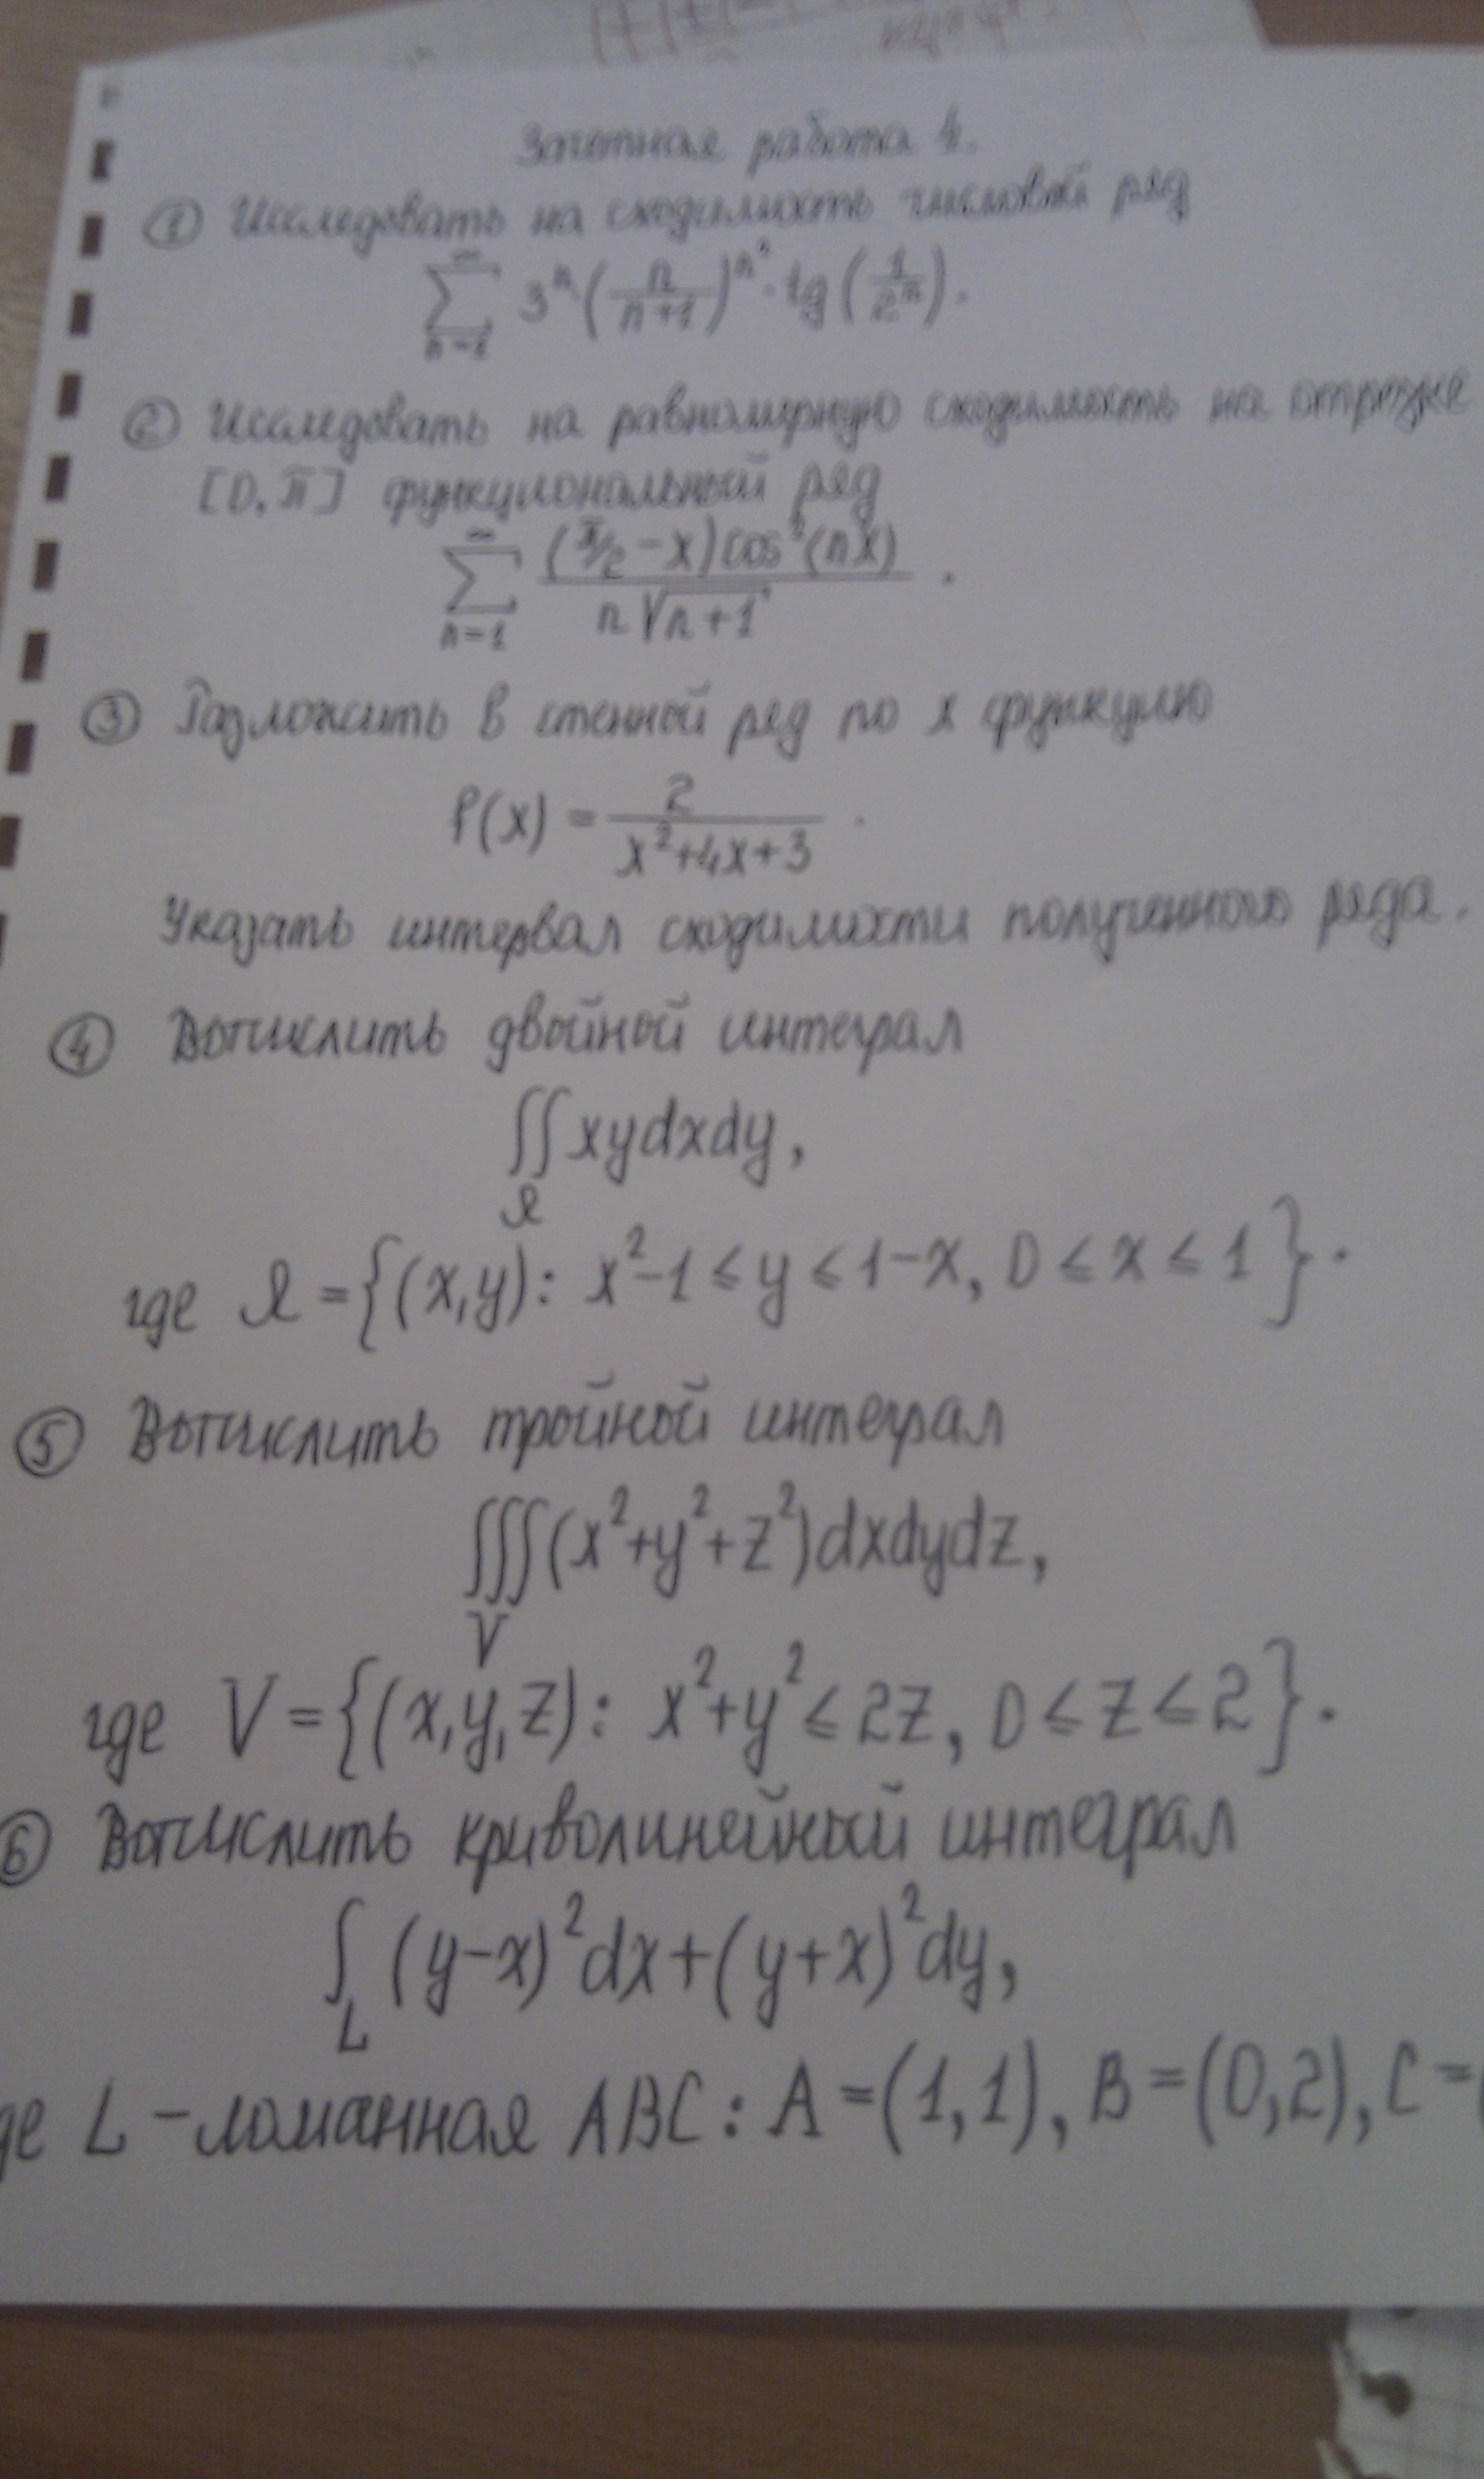 Зачетная работа 4.
① Исследовать на сходимость числовой ряд
∑_{n=1}^{∞} 3^n (n/(n+1))^{n²} · tg(1/2^n).
② Исследовать на равномерную сходимость на отрезке
[0, π] функциональный ряд
∑_{n=1}^{∞} (π/2 − x)cos²(nx) / (n√(n+1)).
③ Разложить в степенной ряд по x функцию
f(x) = 2/(x²+4x+3).
Указать интервал сходимости полученного ряда.
④ Вычислить двойной интеграл
∬_Ω xydxdy,
где Ω = {(x,y): x²−1 ≤ y ≤ 1−x, 0 ≤ x ≤ 1}.
⑤ Вычислить тройной интеграл
∭_V (x²+y²+z²)dxdydz,
где V = {(x,y,z): x²+y² ≤ 2z, 0 ≤ z ≤ 2}.
⑥ Вычислить криволинейный интеграл
∫_L (y−x)²dx+(y+x)²dy,
де L − ломанная ABC: A = (1,1), B = (0,2), C = (